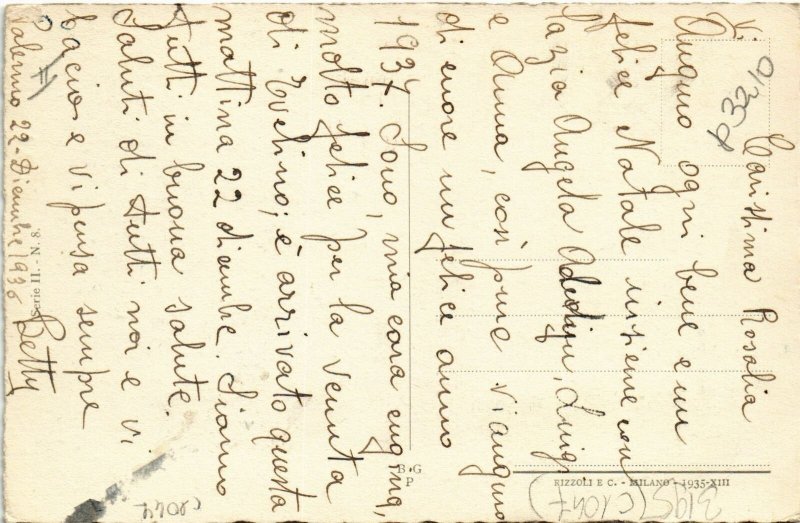 Carissima Rosalia
Vi
Auguro ogni bene e un
felice Natale insieme con
Angela Luigi
e Anna, così pure vi auguro
di cuore un felice anno
1937. Sono, mia cara cugina,
molto felice per la venuta
di Evelino; è arrivato questa
mattina 22 dicembre. Siamo
tutti in buona salute.
Saluti di tutti noi e vi
bacio e vi penso sempre
Betty
Palermo 22-Dicembre 1936
Serie II. - N. 8.
B G
P
RIZZOLI E C. - MILANO - 1935-XIII
p3210
c2047
3195 (c1047)